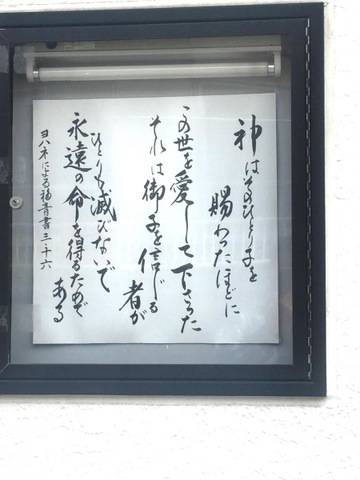 神はそのひとり子を
賜わったほどに
この世を愛して下さった
それは御子を信じる者が
ひとりも滅びないで
永遠の命を得るためで
ある
ヨハネによる福音書三・十六